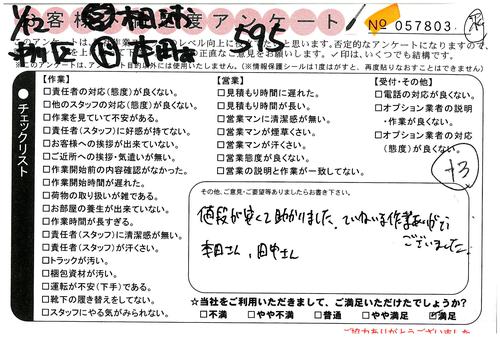 お客様満足度アンケート
No 057803
595
□のアンケートは、アンケート目的以外には使用いたしません。(※情報保護シールは1度がすと、再度貼りなおすことはできません)
チェックリスト
【作業】
□責任者の対応(態度)が良くない。
□他のスタッフの対応(態度)が良くない。
□作業を見ていて不安がある。
□責任者(スタッフ)に好感が持てない。
□お客様への挨拶が出来ていない。
□ご近所への挨拶・気遣いが無い。
□作業開始前の内容確認がなかった。
□作業開始時間が遅れた。
□荷物の取り扱いが雑である。
□お部屋の養生が出来ていない。
□作業時間が長すぎる。
□責任者(スタッフ)に清潔感が無い。
□責任者(スタッフ)が汗くさい。
□トラックが汚い。
□梱包資材が汚い。
□運転が不安(下手)である。
□靴下の履き替えをしてない。
□スタッフにやる気がみられない。
【営業】
□見積もり時間に遅れた。
□見積もり時間が長い。
□営業マンに清潔感が無い。
□営業マンが煙草くさい。
□営業マンが汗くさい。
□営業態度が良くない。
□営業の説明と作業が一致してない。
【受付・その他】
□電話の対応が良くない。
□オプション業者の説明
・作業が良くない。
□オプション業者の対応
(態度)が良くない。
+3
その他、ご意見・ご要望等ありましたらお書き下さい。
値段が安くて助かりました。ていねいな作業ありがとう
ございました。
本田さん、田中さん
☆当社をご利用いただきまして、ご満足いただけたでしょうか?
□不満 □やや不満 □普通 □やや満足 ☑満足
ご協力ありがとうございました